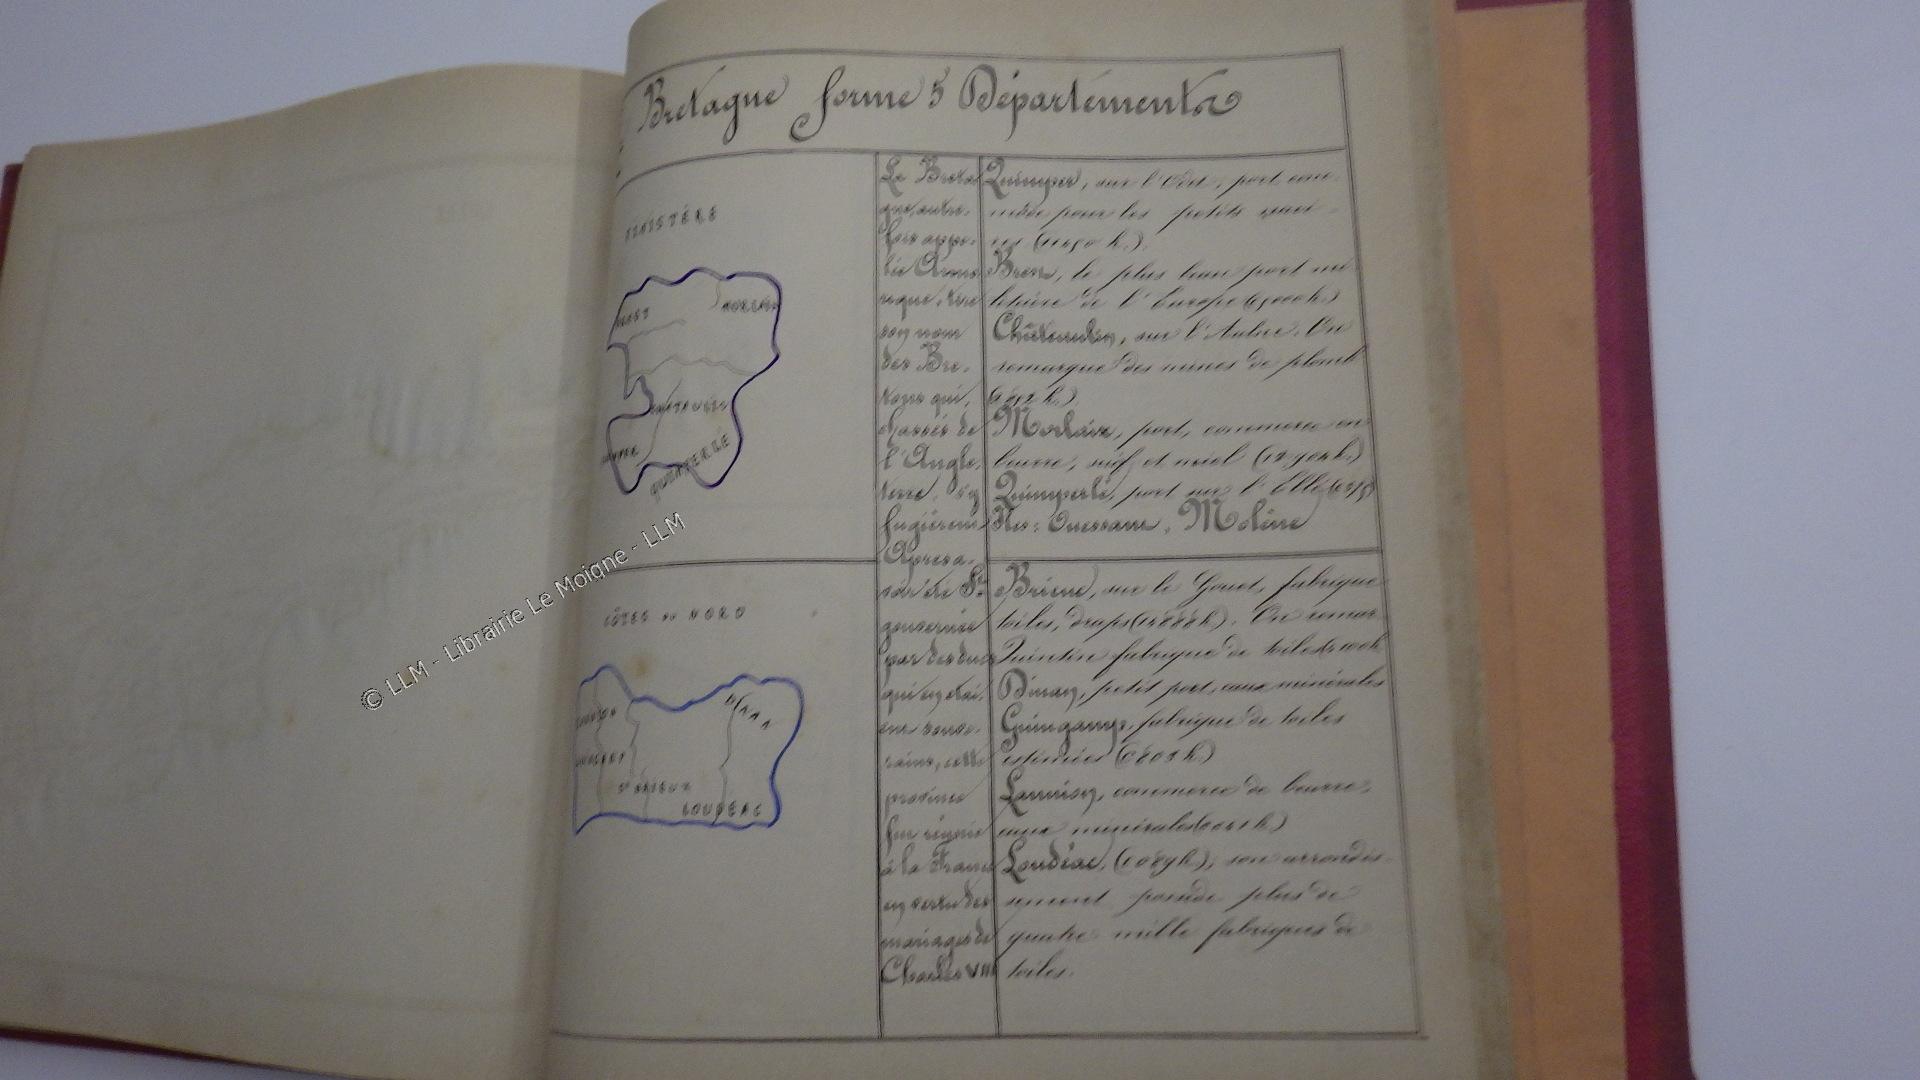 Bretagne forme 5 Départements
FINISTÈRE
BREST
MORLAIX
CHATEAULIN
QUIMPER
QUIMPERLÉ
CÔTES du NORD
LANNION
DINAN
St BRIEUX
LOUDÉAC
La Breta
gne, autre-
fois appe-
lée Armo
rique, tire
son nom
des Bre-
tons qui,
chassés de
l'Angle.
terre, s'y
fugièrent
Après a-
voir été
gouvernée
par des ducs
qui en étai.
ent souve-
rains, cette
province
fut réunie
à la France
en vertu des
mariages de
Charles VIII
Quimper, sur l'Odet, port com-
mode pour les petits navi-
res
Brest, le plus beau port mi
litaire de l'Europe
Châteaulin, sur l'Aulne. On
remarque des mines de plomb
Morlaix, port, commerce en
beurre, suif et miel
Quimperlé, port sur l'Ellé
Iles: Ouessant, Molène
St Brieuc, sur le Gouet, fabrique
toiles, draps. On remar
Quintin fabrique de toiles
Dinan, petit port, eaux minérales
Guingamp, fabrique de toiles
estimées
Lannion, commerce de beurre,
eaux minérales
Loudéac, son arrondis-
sement possède plus de
quatre mille fabriques de
toiles.
© LLM - Librairie Le Moigne - LLM